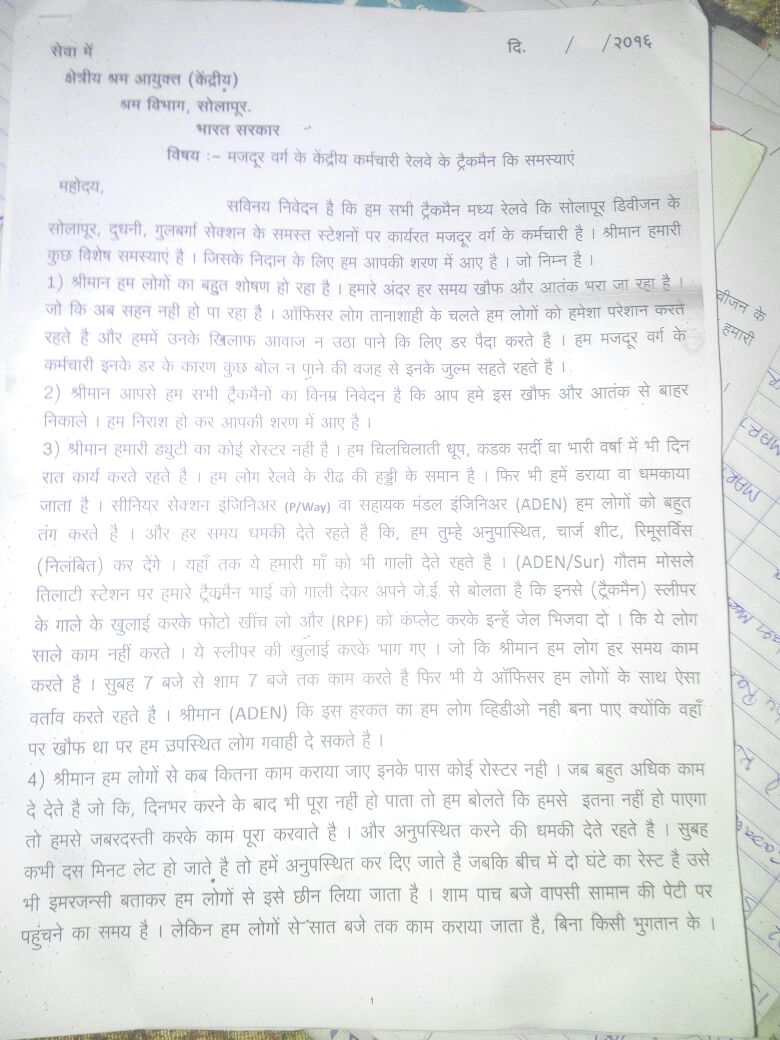 सेवा में
दि. / /२०१६
क्षेत्रीय श्रम आयुक्त (केंद्रीय)
श्रम विभाग, सोलापूर.
भारत सरकार
विषय :– मजदूर वर्ग के केंद्रीय कर्मचारी रेलवे के ट्रैकमैन कि समस्याएं
महोदय,
सविनय निवेदन है कि हम सभी ट्रैकमैन मध्य रेलवे कि सोलापूर डिवीजन के
सोलापूर, दुधनी, गुलबर्गा सेक्शन के समस्त स्टेशनों पर कार्यरत मजदूर वर्ग के कर्मचारी है । श्रीमान हमारी
कुछ विशेष समस्याएं है । जिसके निदान के लिए हम आपकी शरण में आए है । जो निम्न है ।
1) श्रीमान हम लोगों का बहुत शोषण हो रहा है । हमारे अंदर हर समय खौफ और आतंक भरा जा रहा है ।
जो कि अब सहन नही हो पा रहा है । ऑफिसर लोग तानाशाही के चलते हम लोगों को हमेशा परेशान करते
रहते है और हममें उनके खिलाफ आवाज न उठा पाने कि लिए डर पैदा करते है । हम मजदूर वर्ग के
कर्मचारी इनके डर के कारण कुछ बोल न पाने की वजह से इनके जुल्म सहते रहते है ।
2) श्रीमान आपसे हम सभी ट्रैकमैनों का विनम्र निवेदन है कि आप हमे इस खौफ और आतंक से बाहर
निकाले । हम निराश हो कर आपकी शरण में आए है ।
3) श्रीमान हमारी ड्युटी का कोई रोस्टर नहीं है । हम चिलचिलाती धूप, कडक सर्दी वा भारी वर्षा में भी दिन
रात कार्य करते रहते है । हम लोग रेलवे के रीढ की हड्डी के समान है । फिर भी हमें डराया वा धमकाया
जाता है । सीनियर सेक्शन इंजिनिअर (P/Way) वा सहायक मंडल इंजिनिअर (ADEN) हम लोगों को बहुत
तंग करते है । और हर समय धमकी देते रहते है कि, हम तुम्हे अनुपास्थित, चार्ज शीट, रिमूसर्विस
(निलंबित) कर देंगे । यहाँ तक ये हमारी माँ को भी गाली देते रहते है । (ADEN/Sur) गौतम मोसले
तिलाटी स्टेशन पर हमारे ट्रैकमैन भाई को गाली देकर अपने जे.ई. से बोलता है कि इनसे (ट्रैकमैन) स्लीपर
के गाले के खुलाई करके फोटो खींच लो और (RPF) को कंप्लेट करके इन्हें जेल भिजवा दो । कि ये लोग
साले काम नहीं करते । ये स्लीपर की खुलाई करके भाग गए । जो कि श्रीमान हम लोग हर समय काम
करते है । सुबह 7 बजे से शाम 7 बजे तक काम करते है फिर भी ये ऑफिसर हम लोगों के साथ ऐसा
वर्ताव करते रहते है । श्रीमान (ADEN) कि इस हरकत का हम लोग व्हिडीओ नही बना पाए क्योंकि वहाँ
पर खौफ था पर हम उपस्थित लोग गवाही दे सकते है ।
4) श्रीमान हम लोगों से कब कितना काम कराया जाए इनके पास कोई रोस्टर नही । जब बहुत अधिक काम
दे देते है जो कि, दिनभर करने के बाद भी पूरा नहीं हो पाता तो हम बोलते कि हमसे इतना नहीं हो पाएगा
तो हमसे जबरदस्ती करके काम पूरा करवाते है । और अनुपस्थित करने की धमकी देते रहते है । सुबह
कभी दस मिनट लेट हो जाते है तो हमें अनुपस्थित कर दिए जाते है जबकि बीच में दो घंटे का रेस्ट है उसे
भी इमरजन्सी बताकर हम लोगों से इसे छीन लिया जाता है । शाम पाच बजे वापसी सामान की पेटी पर
पहुंचने का समय है । लेकिन हम लोगों से सात बजे तक काम कराया जाता है, बिना किसी भुगतान के ।
1
वीजन के
हमारी